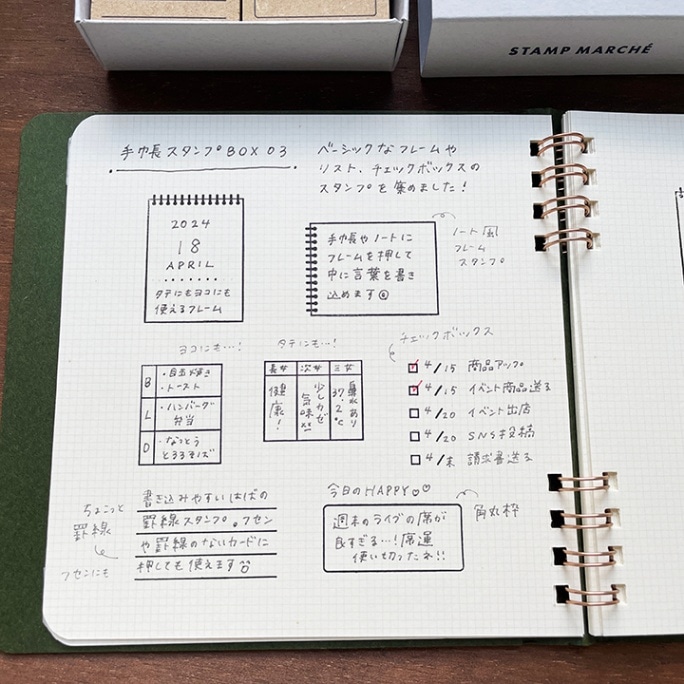 STAMP MARCHÉ
手帳スタンプBOX 03
ベーシックなフレームや
リスト、チェックボックスの
スタンプを集めました!
2024
18
APRIL
タテにもヨコにも
使えるフレーム
手帳やノートに
フレームを押して
中に言葉を書き
込めます
ノート風
フレーム
スタンプ
ヨコにも…!
B
・目玉焼き
・トースト
L
・ハンバーグ
弁当
D
・なっとう
とろろそば
タテにも…!
長女
次女
三女
健康!
少しカゼ
気味
37.2℃
鼻水あり
チェックボックス
4/15 商品アップ
4/15 イベント商品送る
4/20 イベント出店
4/20 SNS投稿
4/末 請求書送る
ちょこっと
罫線
フセンにも
書き込みやすいはばの
罫線スタンプ。フセン
や罫線のないカードに
押しても使えます
今日のHAPPY♡♡
週末のライブの席が
良すぎる…!席運
使い切ったね!!
角丸枠